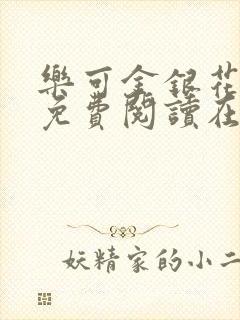 樂可金銀花
免費閱讀在
妖精家的小二